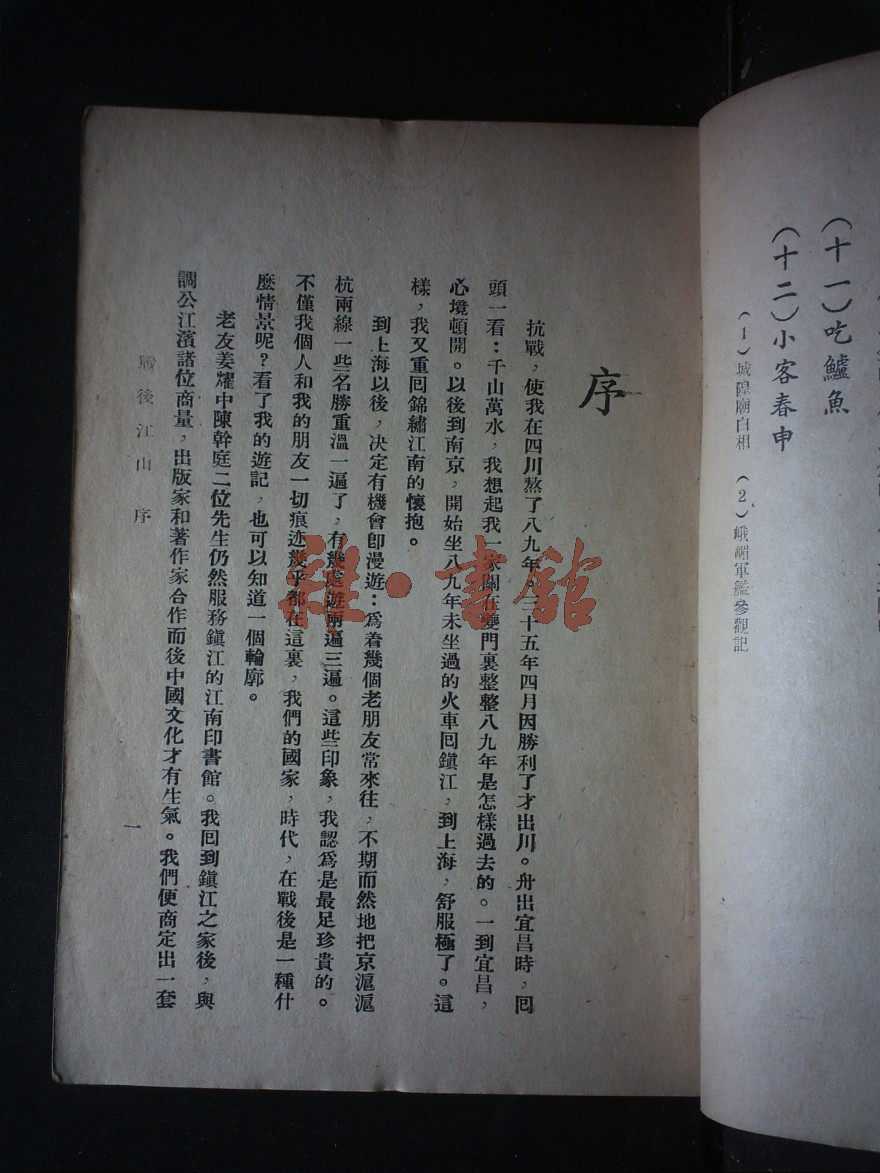 (十一)吃鱸魚
(十二)小客春申
(1)城隍廟白相 (2)峨嵋軍艦參觀記
序
抗戰,使我在四川熬了八九年。三十五年四月因勝利了才出川。舟出宜昌時,回
頭一看:千山萬水,我想起我一家關在夔門裏整整八九年是怎樣過去的。一到宜昌,
心境頓開。以後到南京,開始坐八九年未坐過的火車回鎮江,到上海,舒服極了。這
樣,我又重回錦繡江南的懷抱。
到上海以後,決定有機會卽漫遊:爲着幾個老朋友常來往,不期而然地把京滬滬
杭兩線一些名勝重溫一遍了,有幾處遊兩遍三遍。這些印象,我認爲是最足珍貴的。
不僅我個人和我的朋友一切痕迹幾乎都在這裏,我們的國家,時代,在戰後是一種什
麼情景呢?看了我的遊記,也可以知道一個輪廓。
老友姜耀中陳幹庭二位先生仍然服務鎮江的江南印書館。我回到鎮江之家後,與
調公江濱諸位商量,出版家和著作家合作而後中國文化才有生氣。我們便商定出一套
戰後江山 序
一
雅·書館